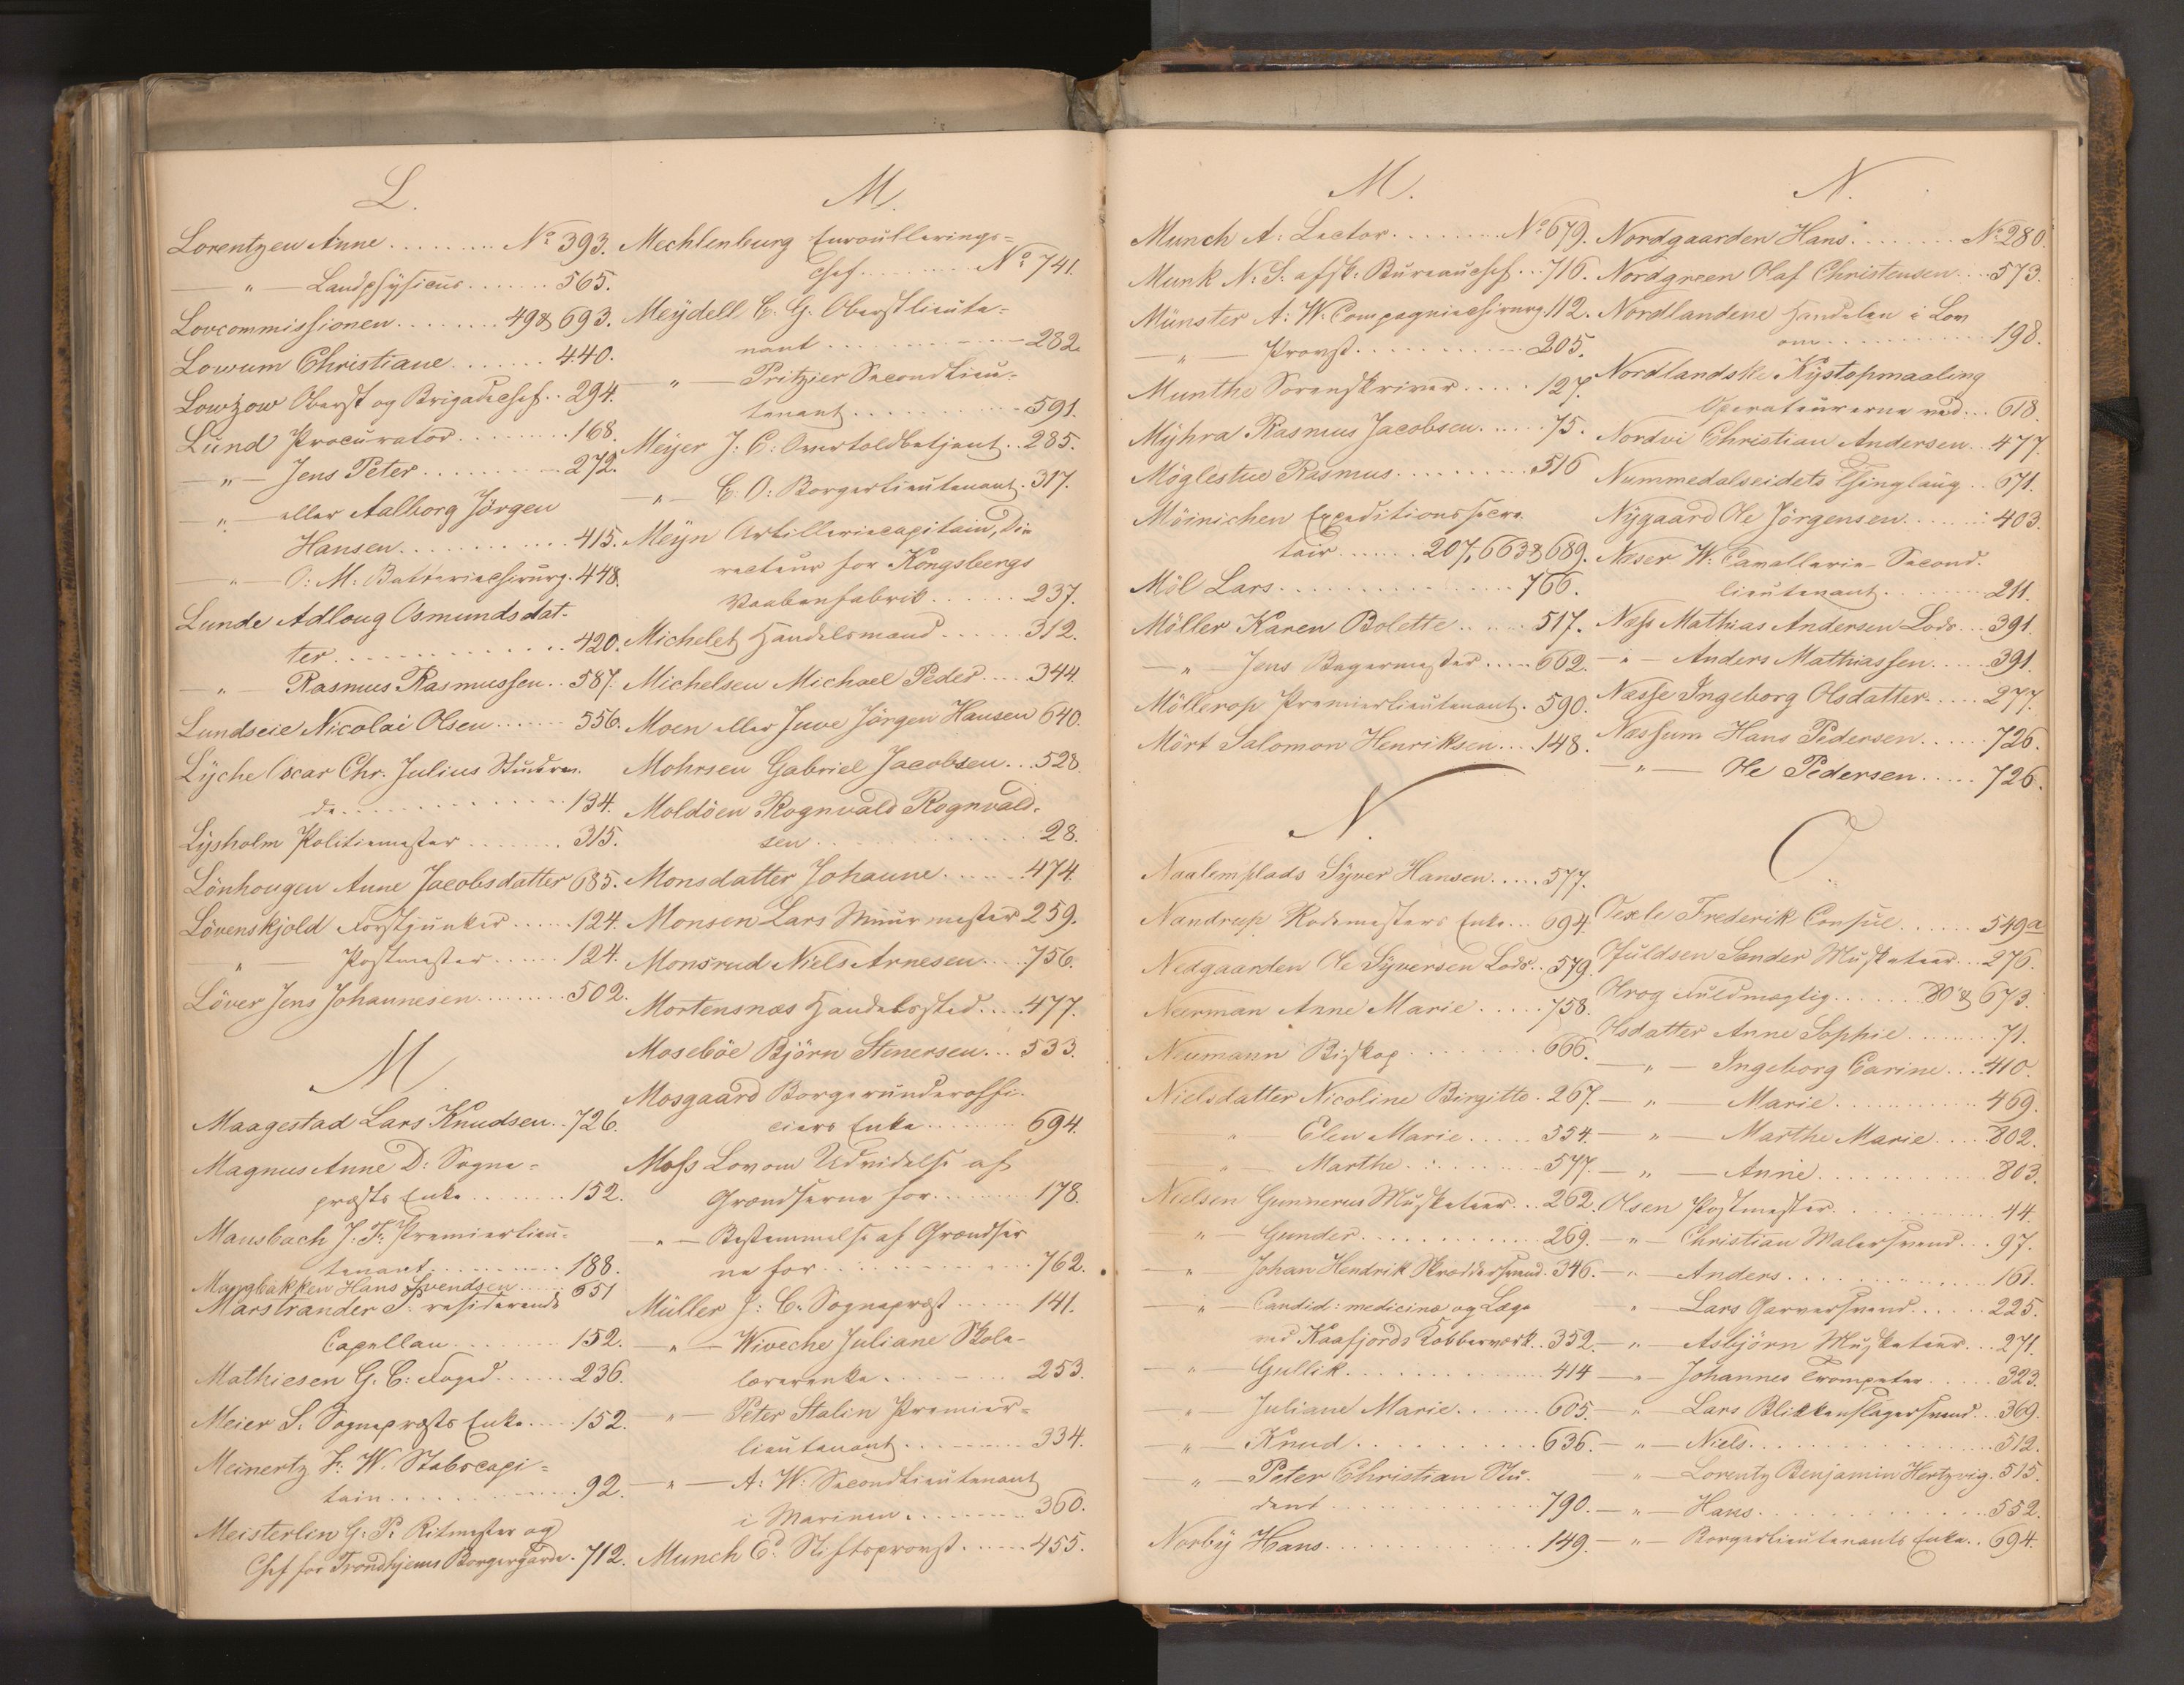 L.
Lorentzen Anne ......... No 393.
— " — Landphysicus ....... 565.
Lovcommissionen ........ 49 & 693.
Lowum Christiane ....... 440.
Lowzow Oberst og Brigadechef .. 294.
Lund Procurator ......... 168.
— " — Jens Peter ......... 272.
— " — eller Aalborg Jörgen
Hansen ........... 415.
— " — O: M: Batteriechirurg. 448.
Lunde Adloug Osmundsdat-
ter ............. 420.
— " — Rasmus Rasmussen .. 587.
Lundseie Nicolai Olsen ...... 556.
Lyche Oscar Chr. Julius Studeren-
de ............. 134.
Lysholm Politiemester ....... 315.
Lönhougen Anne Jacobsdatter 685.
Lövenskjold Forstjunker ...... 124.
" — Postmester ...... 124.
Löver Jens Johannesen ......... 502.
M.
Maagestad Lars Knudsen .. 726.
Magnus Anne D: Sogne=
præsts Enke ........ 152.
Mansbach J: F: Premierlieu=
tenant ........... 188.
Mangbakken Hans Svendsen ...... 651
Marstrander S. residerende
Capellan ........ 152.
Mathiesen G. C: Foged ...... 236.
Meier S. Sognepræsts Enke ..... 152.
Meinertz F: W. Stabscapi=
tain ............. 92.
Meisterlin G. P. Ritmester og
Chef for Trondhjems Borgergarde . 712.
M.
Mechlenburg Enroullerings=
chef ......... No 741.
Meydell C. G. Oberstlieute=
nant ............ 282.
— " — Pritzier Secondlieu=
tenant ........... 591.
Meyer J: C: Overtoldbetjent .. 285.
— " — C. O: Borgerlieutenant . 317.
Meyn Artilleriecapitain, Di-
recteur for Kongsbergs
Vaabenfabrik ...... 237.
Michelet Handelsmand ...... 312.
Michelsen Michael Peder .... 344.
Moen eller Juve Jörgen Hansen 640.
Mohrsen Gabriel Jacobsen ... 528.
Moldöen Rognvald Rognvald-
sen ............. 28.
Monsdatter Johanne ....... 474.
Monsen Lars Muurmester 259.
Monsrud Niels Arnesen .... 756.
Mortensnæs Handelssted ..... 477.
Moseböe Björn Stenersen ... 533.
Mosgaard Borgerunderoffi-
ciers Enke ......... 694.
Moss Lov om Udvidelse af
Grændserne for ......... 178.
— " — Bestemmelse af Grændser
ne for ............ 762.
Müller J: C. Sognepræst ...... 141.
— " — Wiveche Juliane Skole-
lærerenke ......... 253.
— " — Peter Stalin Premier=
lieutenant ......... 334.
— " — A: W: Secondlieutenant
i Marinen ......... 360.
Munch E: Stiftsprovst ...... 455.
M.
Munch A: Lector ......... No 679.
Munk N: S. afsk: Bureauchef ... 716.
Münster A: W. Compagniechirurg 112.
— " — Provst ............ 205.
Munthe Sorenskriver ..... 127.
Myhra Rasmus Jacobsen ...... 75.
Möglestue Rasmus .......... 516
Möinichen Expeditionssecre-
tair ...... 207, 663 & 689.
Möl Lars ............... 766.
Möller Karen Bolette ...... 517.
— " — Jens Bagermester ..... 662.
Möllerop Premierlieutenant . 590.
Mört Salomon Henriksen ... 148.
N.
Naalemplads Syver Hansen ..... 577.
Nandrup Rodemesters Enke ... 694.
Nedgaarden Ole Syversen Lods .. 579.
Neerman Anne Marie ..... 758.
Neumann Biskop ......... 666.
Nielsdatter Nicoline Birgitte . 267.
" — Elen Marie ..... 554.
" — Marthe ......... 577.
Nielsen Gunnerus Musketeer ... 262.
" — Gunder ............ 269.
— " — Johan Hendrik Skræddersvend . 346.
— " — Candid: medicinæ og Læge
ved Kaafjords Kobberværk .. 352.
— " — Gullik ............ 414
— " — Juliane Marie ....... 605.
— " — Knud ............ 636.
— " — Peter Christian Stu-
dent ............. 790.
Norby Hans ............. 149.
N.
Nordgaarden Hans ......... No 280.
Nordgreen Olaf Christensen .... 573.
Nordlandene Handelen i Lov
om ............. 198.
Nordlandske Kystopmaaling
Operateurerne ved ... 618.
Nordvi Christian Andersen .. 477.
Nummedalseidets Thinglaug .. 671.
Nygaard Ole Jörgensen ....... 403.
Næser W. Cavallerie-Second-
lieutenant ......... 211.
Næss Mathias Andersen Lods ... 391.
— " — Anders Mathiassen ..... 391.
Næsse Ingeborg Olsdatter ..... 277.
Næssum Hans Pedersen ...... 726.
— " — Ole Pedersen ..... 726.
O.
Oexle Frederik Consul ...... 549a
Ofuldsen Sander Musketeer ... 276.
Olrog Fuldmægtig ...... 80 & 673.
Olsdatter Anne Sophie ........ 71.
— " — Ingeborg Carine .... 410.
— " — Marie ............ 469.
— " — Marthe Marie .... 802.
— " — Anne ............ 803.
Olsen Postmester ............ 44.
— " — Christian Malersvend ... 97.
— " — Anders ............ 161.
" — Lars Garversvend ...... 225.
— " — Asbjörn Musketeer ... 271.
— " — Johannes Trompeter ..... 323.
— " — Lars Blikkenslagersvend .. 369.
— " — Niels ............ 512.
" — Lorentz Benjamin Hertzvig . 515.
— " — Hans ............ 552.
— " — Borgerlieutenants Enke .. 694.